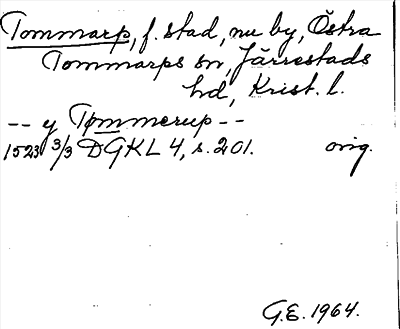 Tommarp, f. stad, nu by, Östra
Tommarps sn, Järrestads
hd, Krist. l.
-- y Tømmerup --
1523 3/3 DGKL 4, s. 201. orig.
G.E. 1964.